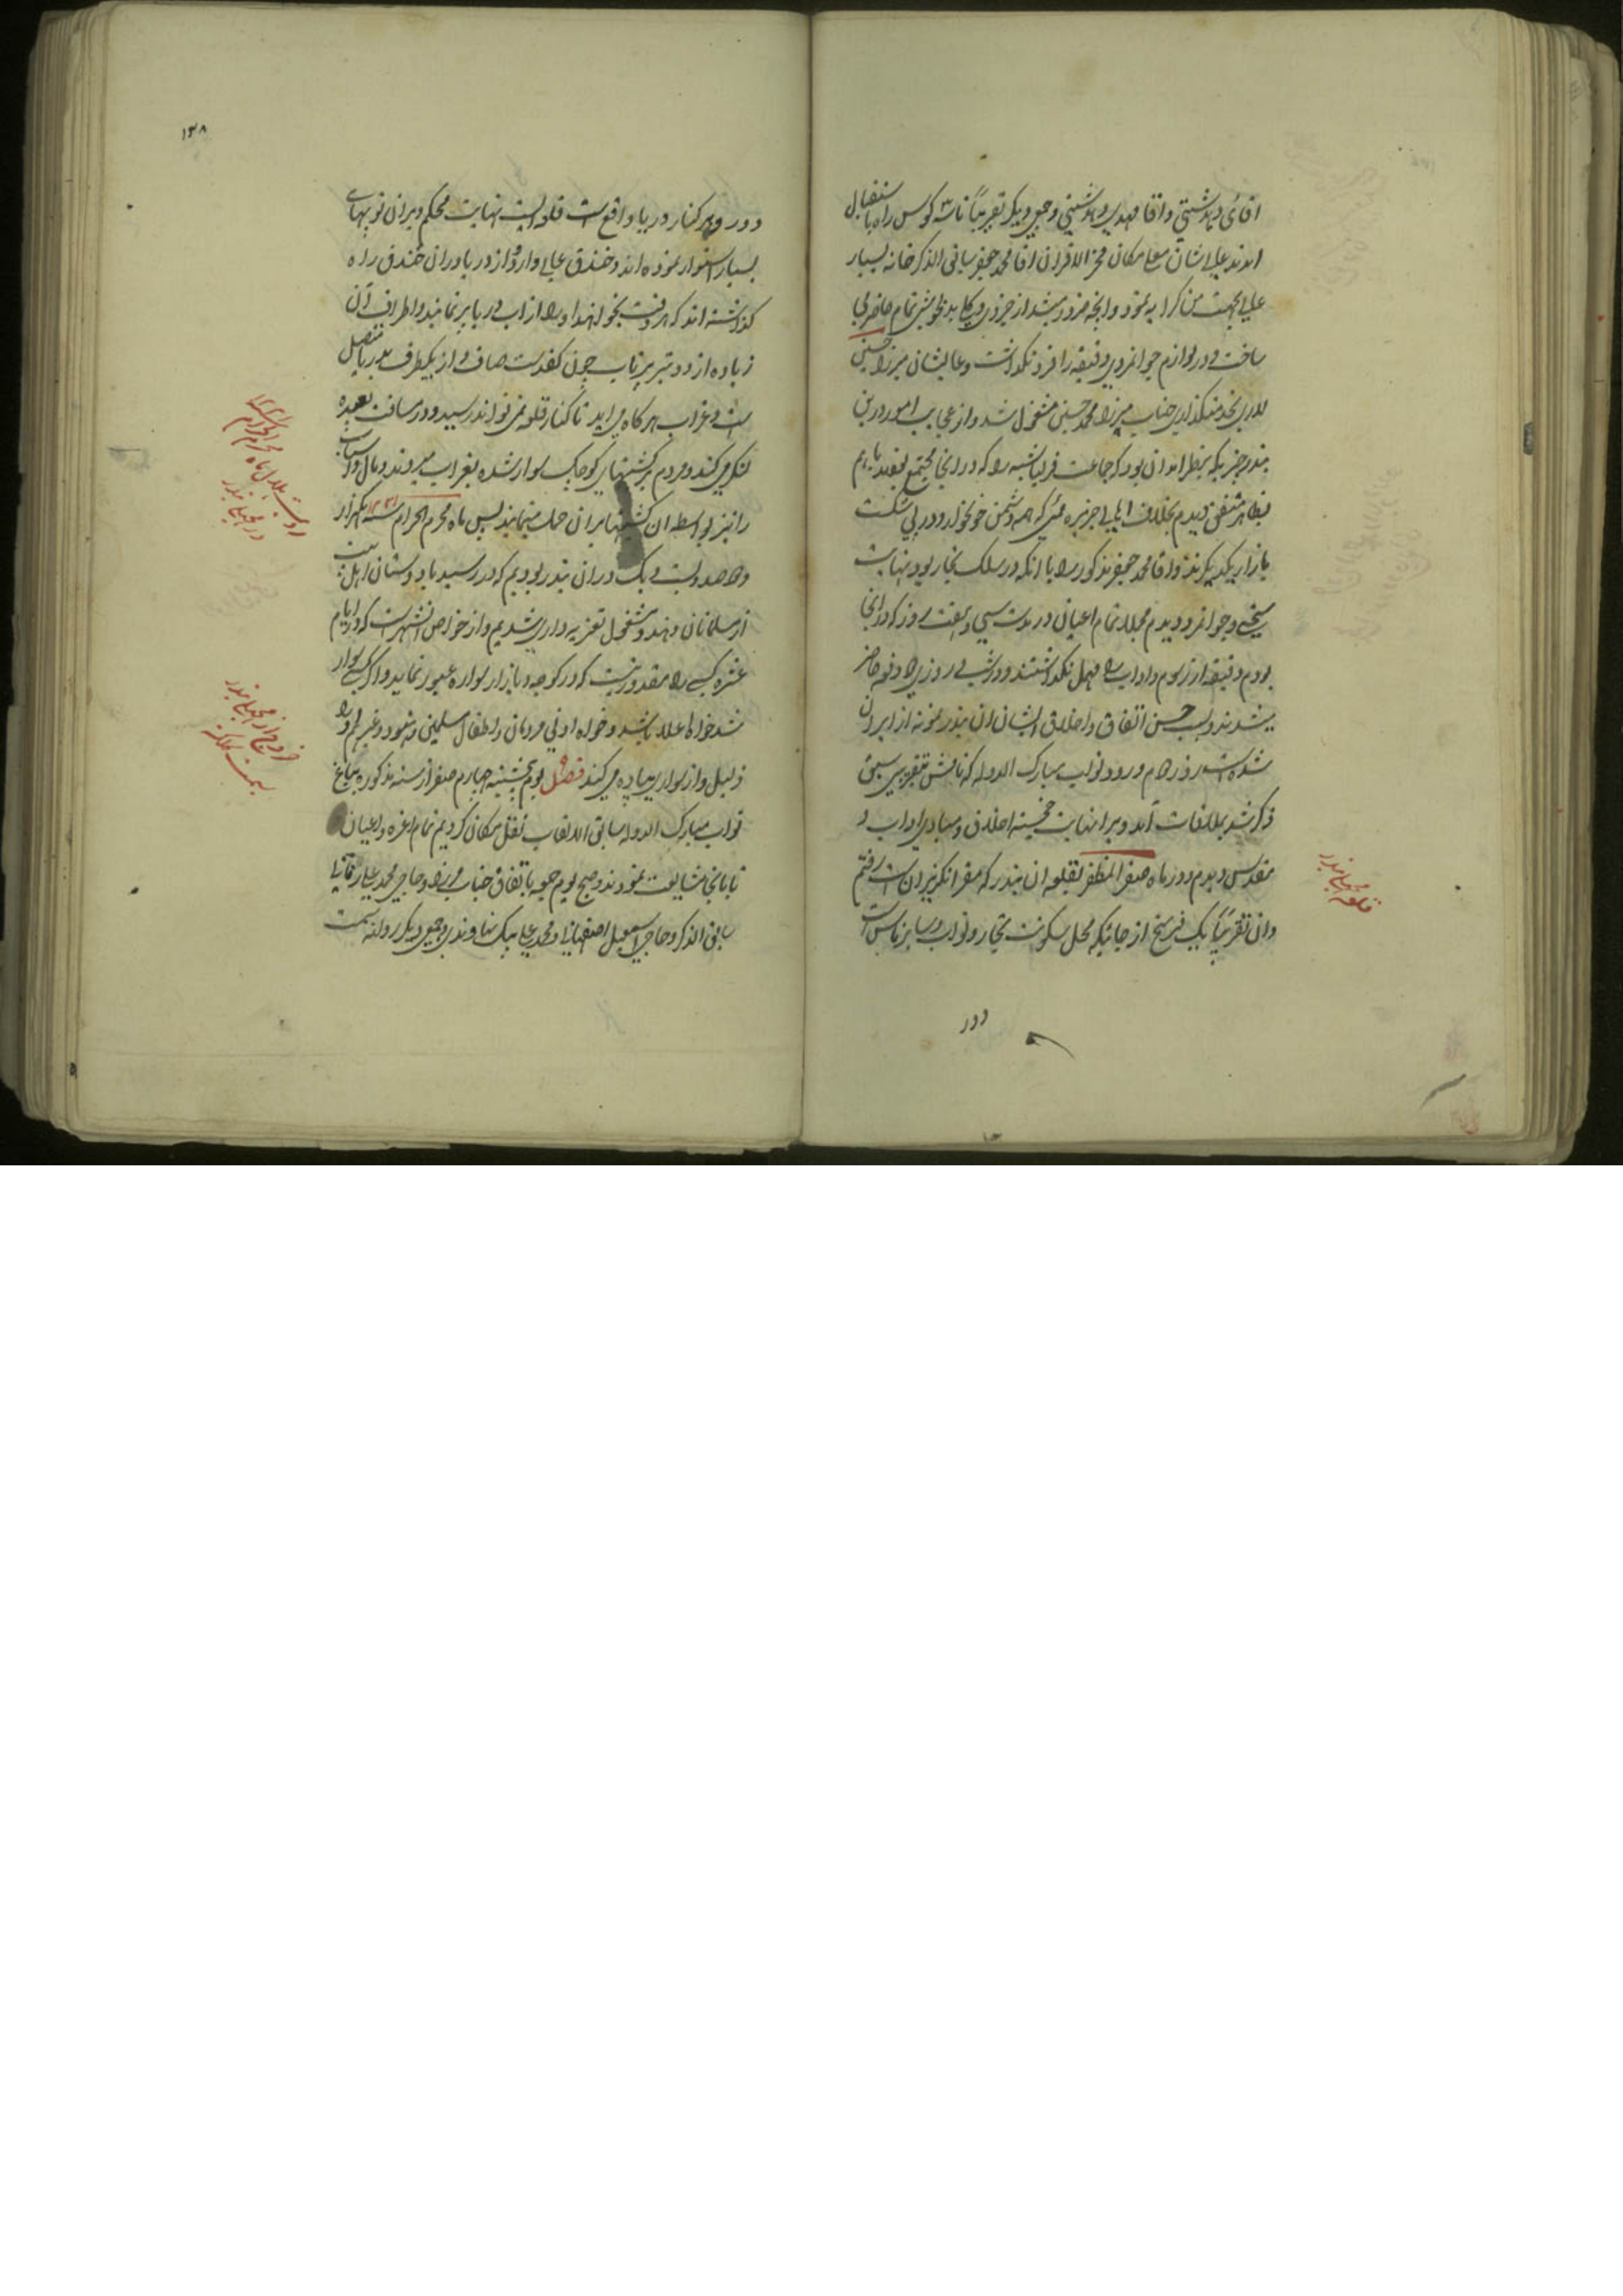 اقائی دهدشتی و اقا مهدی دهدشتی و جمعی دیکر تقریباً تا سه کوس راه باستقبال
امدند عالیشان معلی مکان فخر الاقران اقا محمد جعفر سابق الذکر خانه بسیار
عالی بجهت من کرایه نمود و انچه ضرور میشد از جزوی و کلی بدلخواهی تمام حاضر
ساخت و در لوازم جوانمردی دقیقه را فرو نکذاشت و عالیشان میرزا حسین
لاری بخدمتکذاری جناب میرزا محمد حسین مشغول شد و از عجایب امور در این
بندر چیزیکه بنظر امد ان بود که جماعت قزلباشیه را که در انجا مجتمع بودند باهم
بظاهر متفق دیدم بخلاف اهالی جزیره که همه دشمن خونخوار و در پی شکست
بازار یکدیکرند و اقا محمد جعفر مذکور را با انکه در سلک تجار بود بنهایت
سخی و جوانمرد دیدم مجملا تمام اعیان در مدت سی و هفت روز که در انجا
بودم دقیقه از رسوم و اداب را مهمل نکذاشتند و در شبانه روزی دو دفعه حاضر
میشدند و بسبب حسن اتفاق و اخلاق ایشان ان بندر نمونه از ایران
شده است روز دوم ورود نواب مبارک الدوله که نامش بتقریبی سبق
ذکر شد بملاقات آمد و بنهایت خجسته اخلاق و مبادی اداب و
مقدس دیدم و در ماه صفر المظفر بقلعه ان بندر که مقر انکریزان است رفتم
وان تقریباً یک فرسخ از جائیکه محل سکونت تجار و نواب و سایر ناس است
دور
قلعه بندر
۱۳۸
دور و بر کنار دریا واقع است قلعه ایست بنهایت محکم و بران توپهای
بسیار استوار نموده اند و خندق عالی دارد و از دریا دران خندق راه
کذاشته اند که هر وقت بخواهند او را از اب دریا پر نمایند و اطراف آن
زیاده از دو تیر پرتاب چون کف دست صاف و از یکطرف بدریا متصل
است و غراب هر کاه می اید تا کنار قلعه نمی تواند رسید و در مسافت بعیده
لنکر می کند و مردم بر کشتیهای کوچک سوار شده بغراب میروند و مال و اسباب
را نیز بواسطه ان کشتیها بران حمل مینمایند پس ماه محرم الحرام سنه ۱۲۲۱ یکهزار
و دو صد و بیست و یک دران بندر بودیم که در رسید با دوستان اهل بیت
از مسلمانان و هند مشغول تعزیه داری شدیم و از خواص انشهر است که در ایام
عشره کسی را مقدور نیست که در کوچه و بازار سواره عبور نماید و اکر کسی سوار
شد خواه اعلا باشد و خواه ادنی مردمان و اطفال مسلمین و هنود و غیرهم او را
ذلیل و از سواری پیاده می کنند فصل یوم پنجشنبه چهارم صفر از سنه مذکوره بباغ
نواب مبارک الدوله سابق الالقاب نقل مکان کردیم تمام اعزه و اعیان
تا بانجا مشایعت نمودند و صبح یوم جمعه باتفاق جناب میرزا و حاجی محمد علی
سابق الذکر و حاجی اسمعیل اصفهانی و محمد علی بیک نهاوندی و جمعی دیکر روانه سمت
رویت هلال ماه محرم الحرام سنه ۱۲۲۱
در بندر
خروج از بندر
بسمت